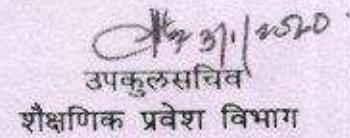 31/1/2020
उपकुलसचिव
शैक्षणिक प्रवेश विभाग